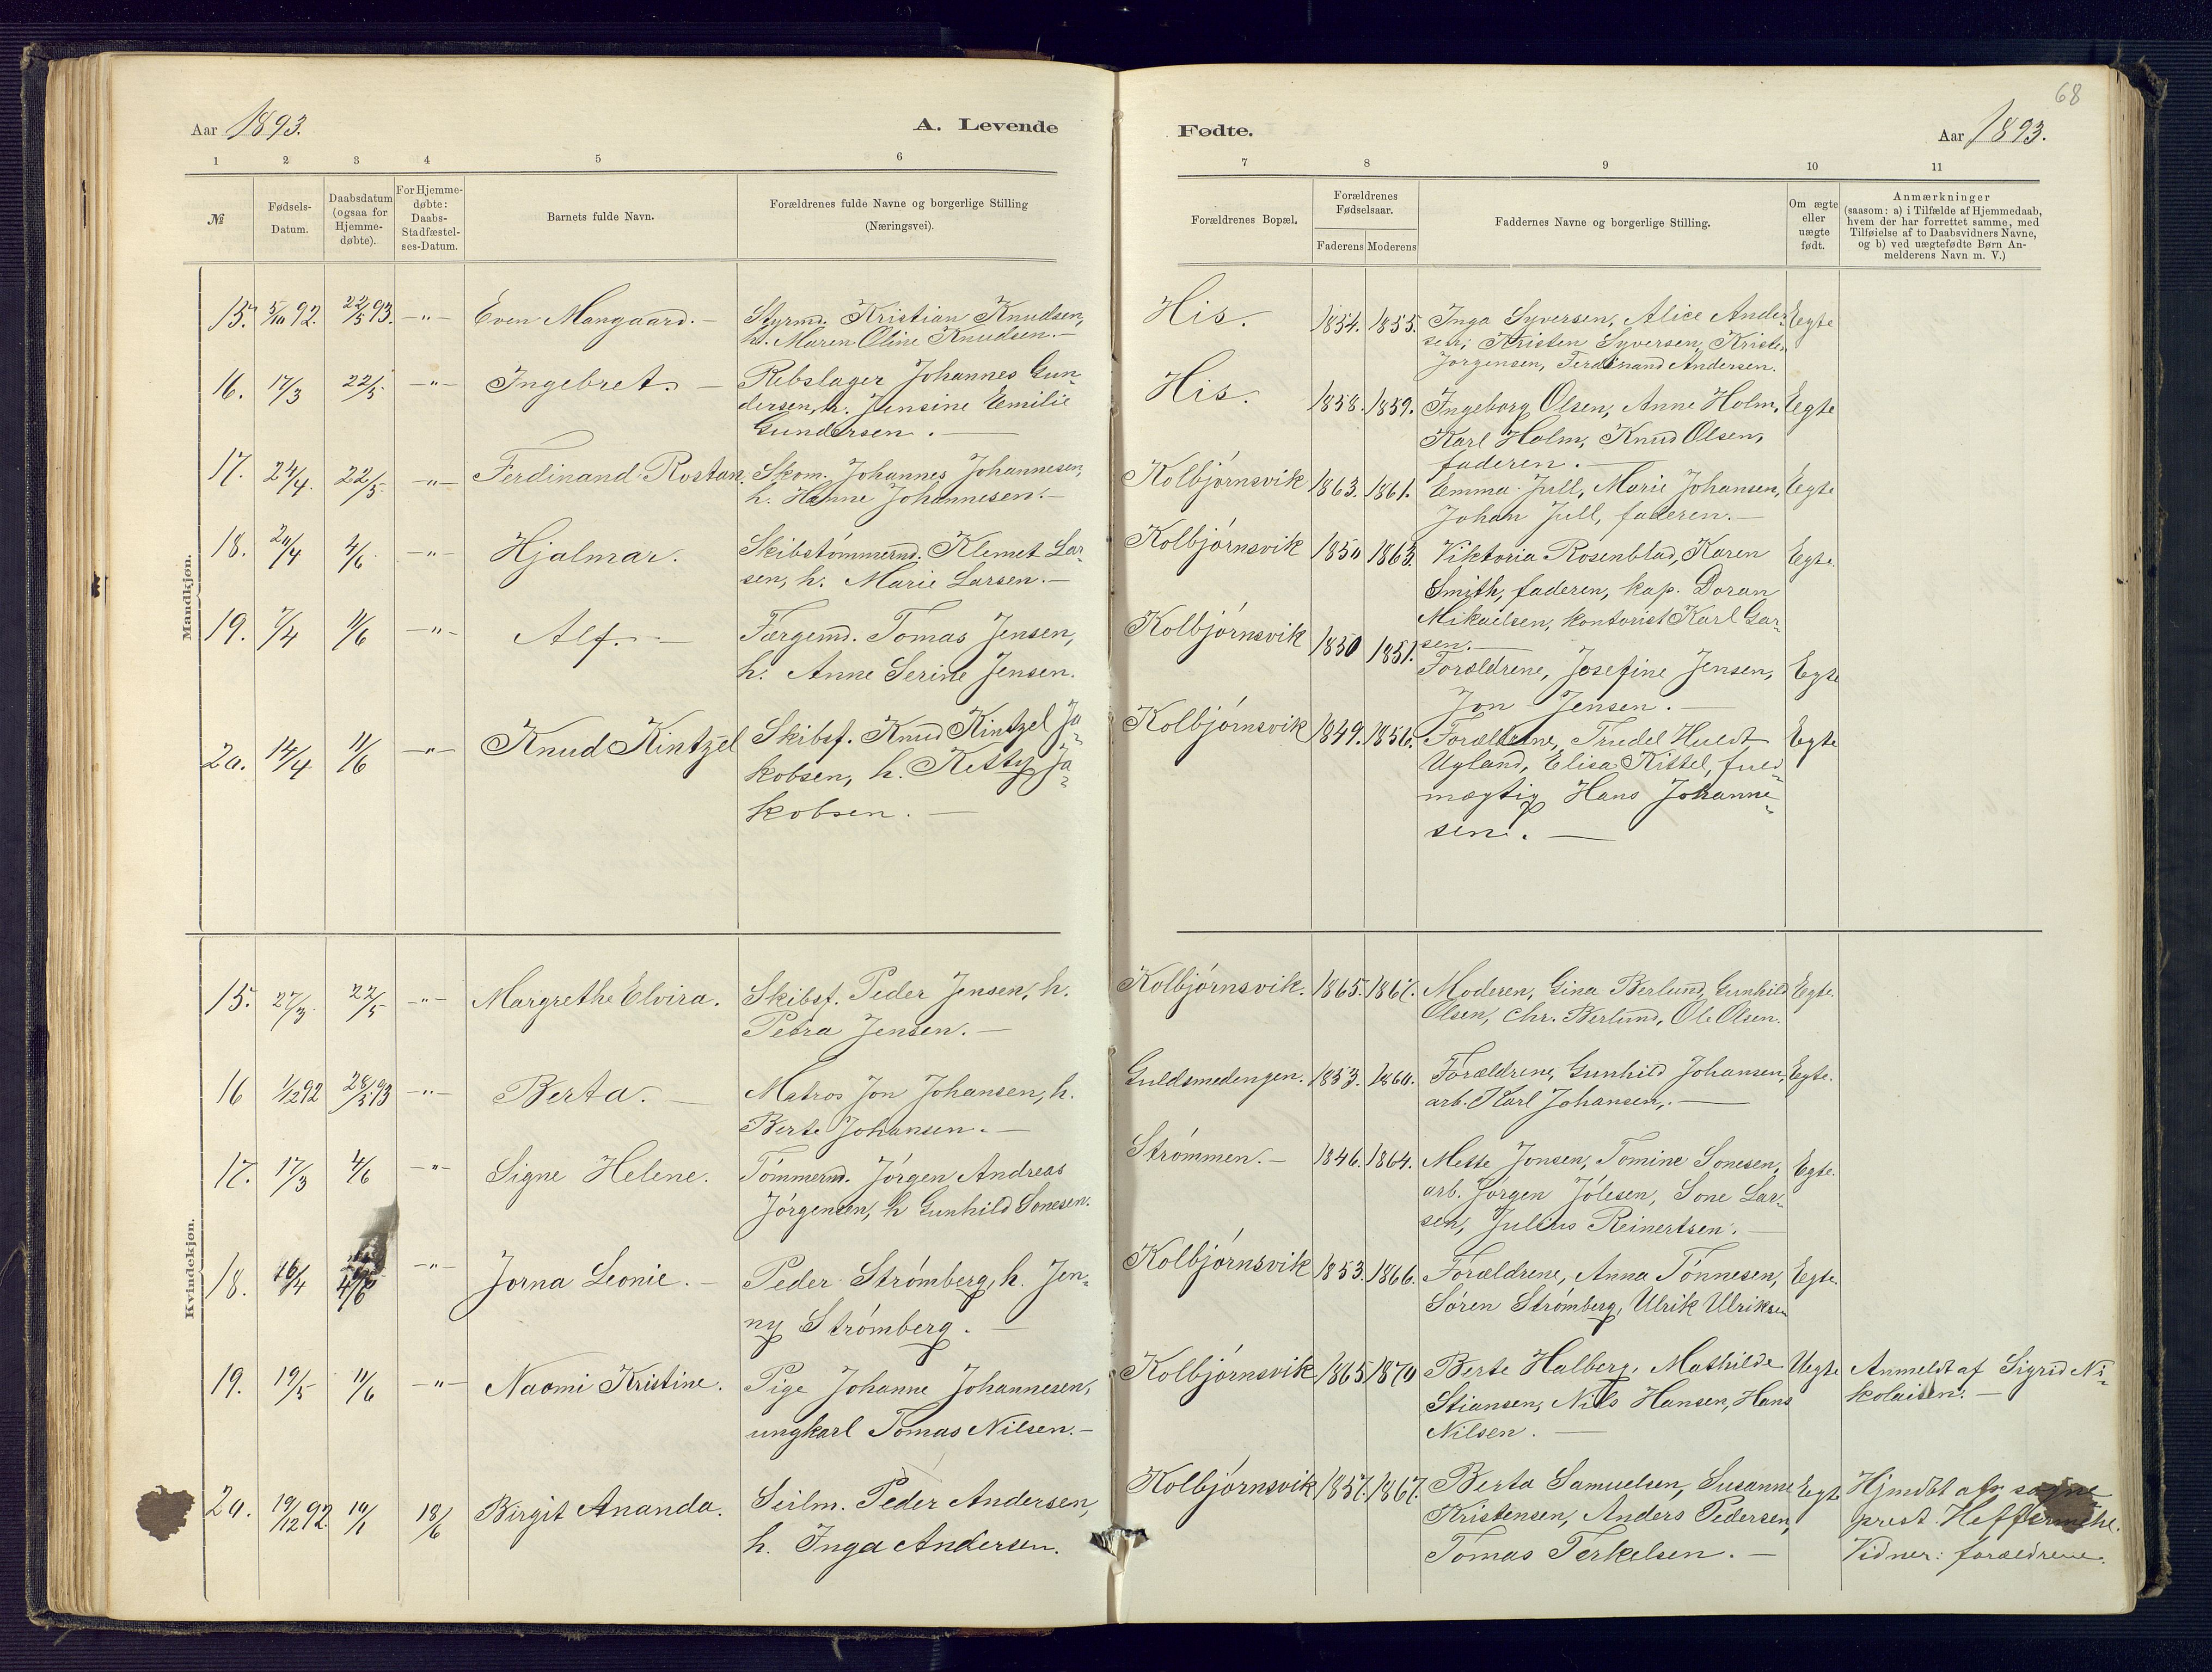 68
Aar 1893.
A. Levende
Fødte.
Aar 1893.
1 2 3 4 5 6
7 8 9 10 11
№
Fødsels-
Datum.
Daabsdatum
(ogsaa for
Hjemme-
døbte).
For Hjemme-
døbte:
Daabs-
Stadfæstel-
ses-Datum.
Barnets fulde Navn.
Forældrenes fulde Navne og borgerlige Stilling
(Næringsvei).
Forældrenes Bopæl.
Forældrenes
Fødselsaar.
Faderens Moderens
Faddernes Navne og borgerlige Stilling.
Om ægte
eller
uægte
født.
Anmærkninger
(saasom: a) i Tilfælde af Hjemmedaab,
hvem der har forrettet samme, med
Tilføielse af to Daabsvidners Navne,
og b) ved uægtefødte Børn An-
melderens Navn m. V.)
Mandkjøn.
15. 5/10 92. 22/5 93. -"- Even Mangaard. - Styrmd. Kristian Knudsen,
h. Maren Oline Knudsen. -
His. 1854. 1855. Inga Syversen, Alice Ander- Egte
sen, Kristen Syversen, Kristen
Jørgensen, Ferdinand Andersen.
16. 17/3 22/5 -"- Ingebret. - Rebslager Johannes Gun-
dersen, h. Jensine Emilie
Gundersen. -
His. 1858. 1859. Ingeborg Olsen, Anne Holm, Egte
Karl Holm, Knud Olsen,
faderen. -
17. 24/4. 22/5. -"- Ferdinand Rostan. Skom. Johannes Johannesen,
h. Hanne Johannesen. -
Kolbjørnsvik 1863. 1861. Emma Jull, Marie Johansen, Egte
Johan Jull, faderen. -
18. 20/4 4/6. -"- Hjalmar. Skibstømmermd. Klemet Lar-
sen, h. Marie Larsen. -
Kolbjørnsvik 1850 1863. Viktoria Rosenblad, Karen Egte.
Smith, faderen, kap. Doran
Mikaelsen, kontorist Karl Gar-
sen. -
19. 7/4 11/6 -"- Alf. - Færgemd. Tomas Jensen,
h. Anne Serine Jensen.
Kolbjørnsvik 1850 1851. Forældrene, Josefine Jensen, Egte
Jon Jensen. -
20. 14/4 11/6 -"- Knud Kintzel Skibsf. Knud Kintzel Ja-
kobsen, h. Ketty Ja-
kobsen. -
Kolbjørnsvik 1849. 1856. Forældrene, Trudel Huldt Egte
Ugland, Elisa Kittel, fuld-
mægtig Hans Johanne-
sen. -
Kvindekjøn.
15. 27/3. 22/5 -"- Margrethe Elvira. Skibsf. Peder Jensen, h.
Petra Jensen. -
Kolbjørnsvik. 1865. 1867. Moderen, Gina Berlund, Gunhild Egte.
Olsen, Chr. Berlund, Ole Olsen.
16 1/12 92 28/5 93 -"- Berta. - Matros Jon Johansen, h.
Berte Johansen. -
Guldsmedengen. 1853. 1860. Forældrene, Gunhild Johansen, Egte.
arb. Karl Johansen. -
17. 17/3 4/6 -"- Signe Helene. Tømmermd. Jørgen Andreas
Jørgensen, h Gunhild Sonesen.
Strømmen. - 1846. 1864. Mette Jonsen, Tomine Sonesen, Egte.
arb. Jørgen Jólesen, Sone Lar-
sen, Julius Reinertsen. -
18. 16/4 4/6 -"- Jorna Leonie. - Peder Strømberg, h. Jen-
ny Strømberg. -
Kolbjørnsvik 1853. 1866. Forældrene, Anna Tønnesen, Egte.
Søren Strømberg, Ulrik Ulriksen
19. 19/5 11/6 -"- Naomi Kristine. Pige Johanne Johannesen,
ungkarl Tomas Nilsen. -
Kolbjørnsvik 1865 1870 Berte Halberg, Mathilde Uegte Anmeldt af Sigrid Ni-
Stiansen, Nils Hansen, Hans kolaisen. -
Nilsen. -
20. 19/12 92. 10/1 18/6 Birgit Ananda. Seilm. Peder Andersen,
h. Inga Andersen.
Kolbjørnsvik 1857. 1867. Berta Samuelsen, Susanne Egte Hjmdbt af sogne
Kristensen, Anders Pedersen, prest Heffermehl.
Tomas Terkelsen. - Vidner: forældrene.